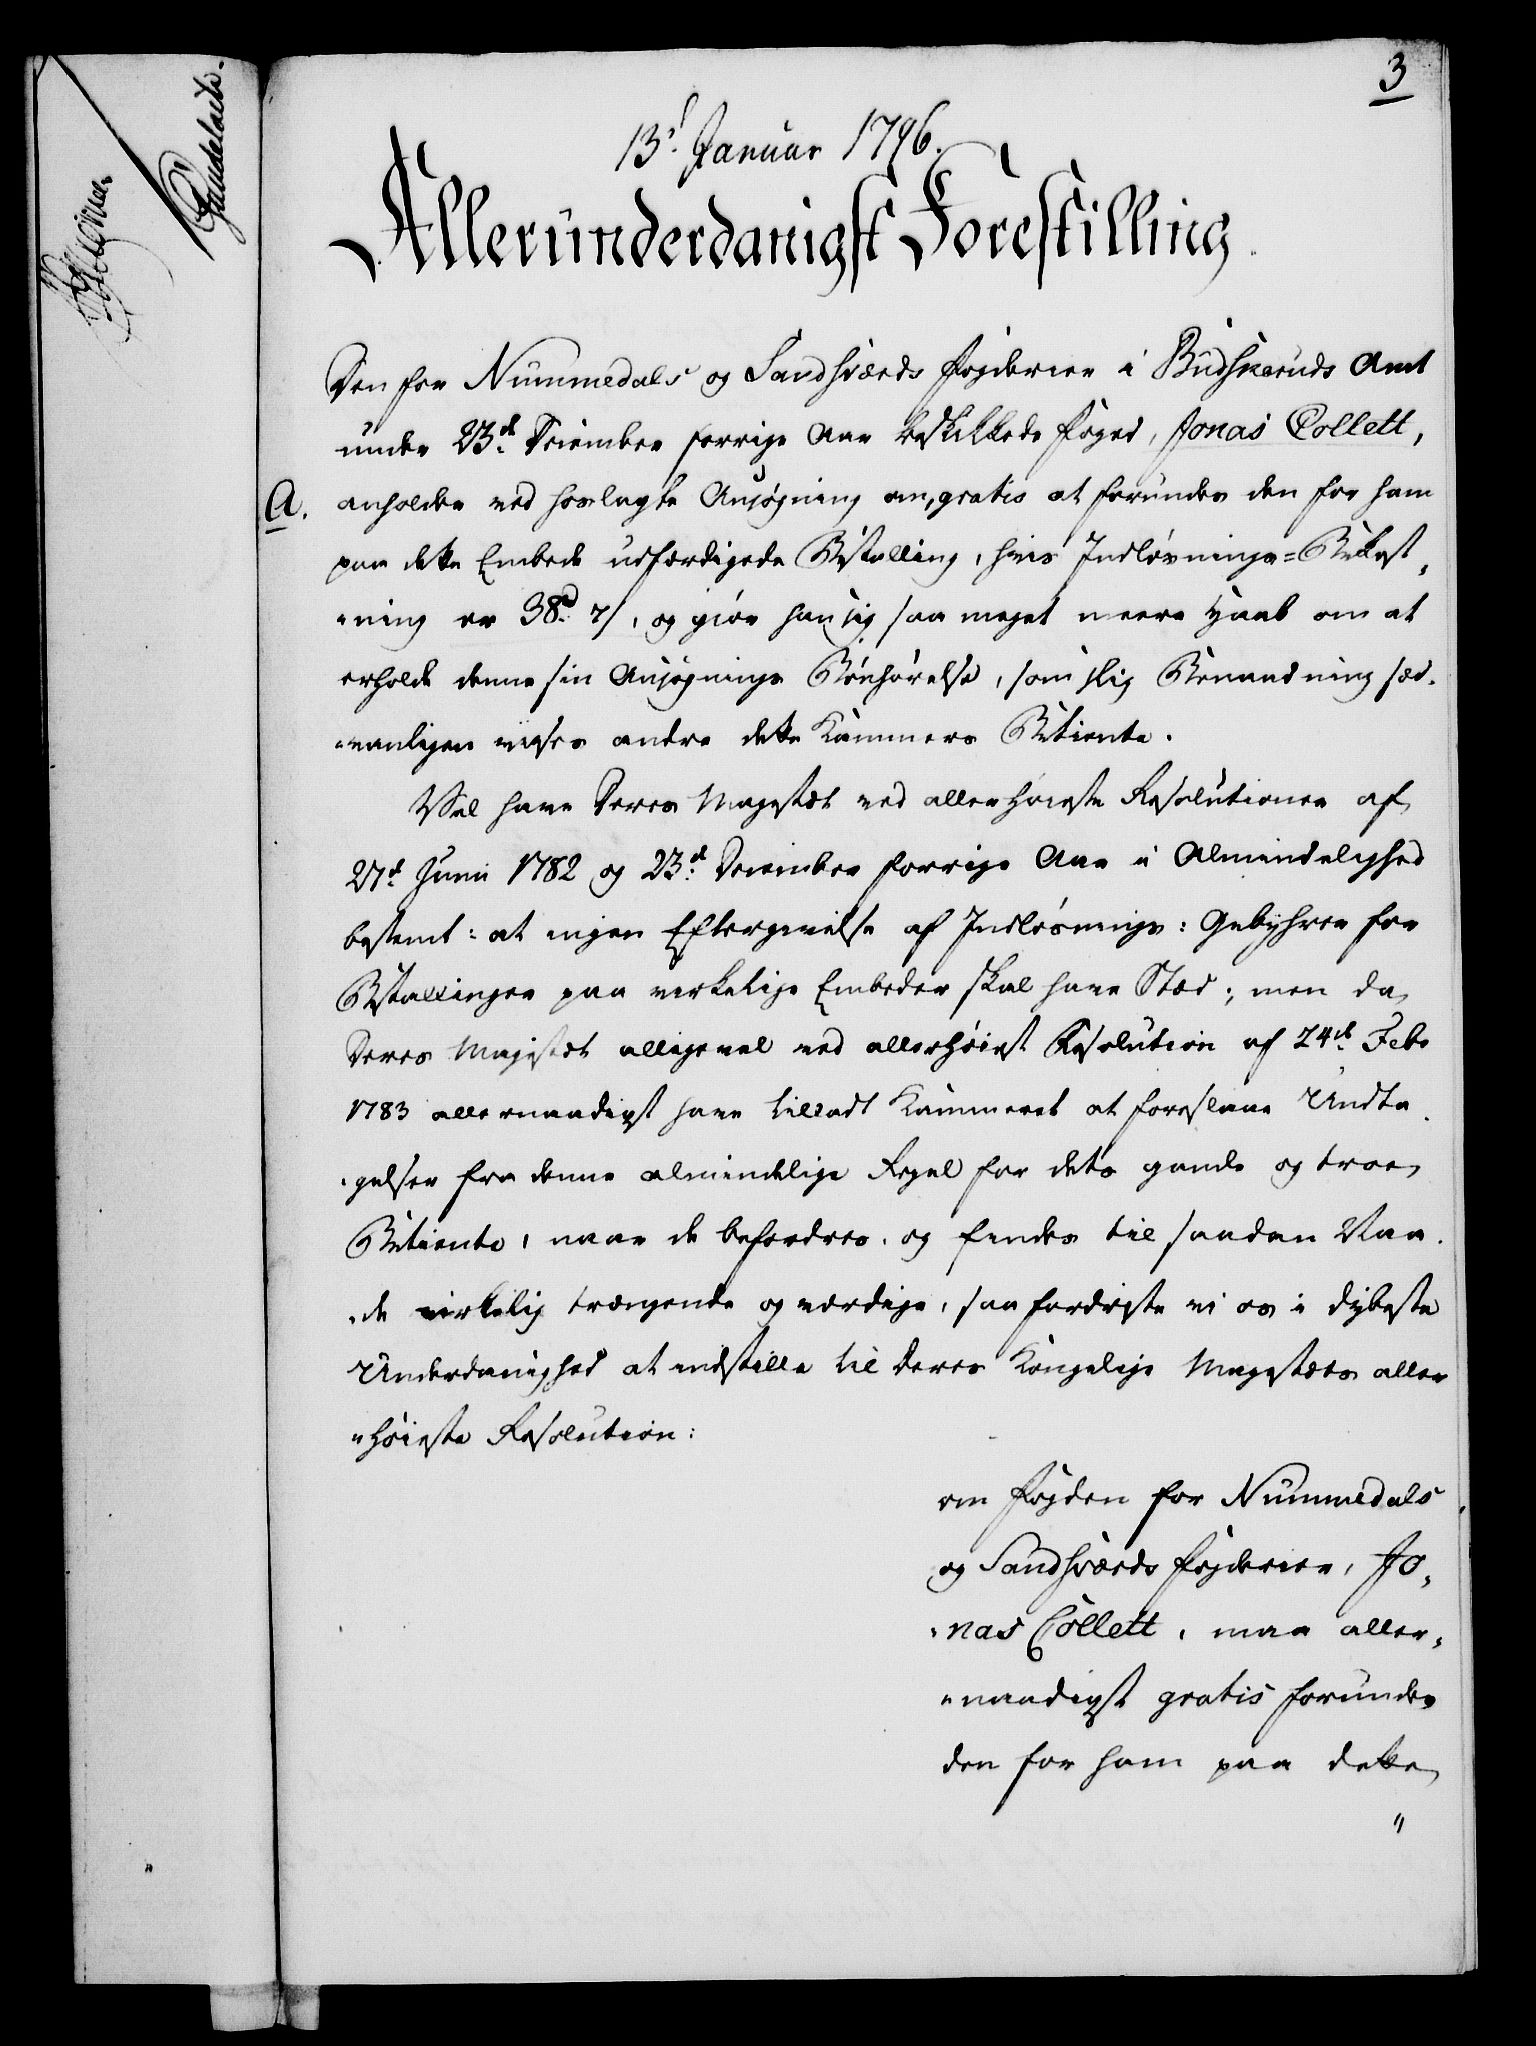 3
13d Januar 1796.
Allerunderdanigst Forestilling
Den for Nummedals og Sandsværds Fogderier i Budskeruds Amt
under 23de December forrige Aar beskikkede Foged, Jonas Collett,
A. anholder ved hoslagte Ansøgning om, gratis at forundes den for ham
paa dette Embede udfærdigede Bestalling, hvis Indløsnings-Bekost-
-ning er 38rd 7s, og giør han sig saa meget meere Haab om at
erholde denne sin Ansøgnings Bønhørelse, som slig Benaadning sæd-
-vanligen vises andre dette Kammers Betiente.
Vel have Deres Majestæt ved allerhøieste Resolutioner af
27d Junii 1782 og 23d December forrige Aar i Almindelighed
bestemt: at ingen Eftergivelse af Indløsnings-Gebyhrer for
Bestallinger paa virkelige Embeder skal have Sted; men da
Deres Majestæt alligevel ved allerhøiest Resolution af 24de Febr
1783 allernaadigst have tilladt Kammeret at foreslaae Undta-
-gelser fra denne almindelige Regel for dets gamle og troe
Betiente, naar de befordres, og findes til saadan Naa-
-de virkelig trængende og værdige, saa fordriste vi os i dybeste
Underdanighed at indstille til Deres Kongelige Majestæts aller
-høieste Resolution:
om Fogden for Nummedals
og Sandsværds Fogderier, Jo-
-nas Collett, maa aller-
-naadigst gratis forundes
den for ham paa dette
"